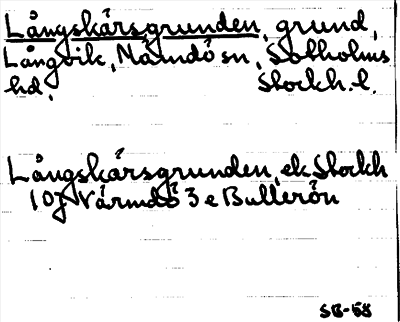 Långskärsgrunden, grund,
Långvik, Nämdö sn, Sotholms
hd, Stockh. l.
Långskärsgrunden, ek Stockh
10J Värmdö 3 e Bullerön
SB-58